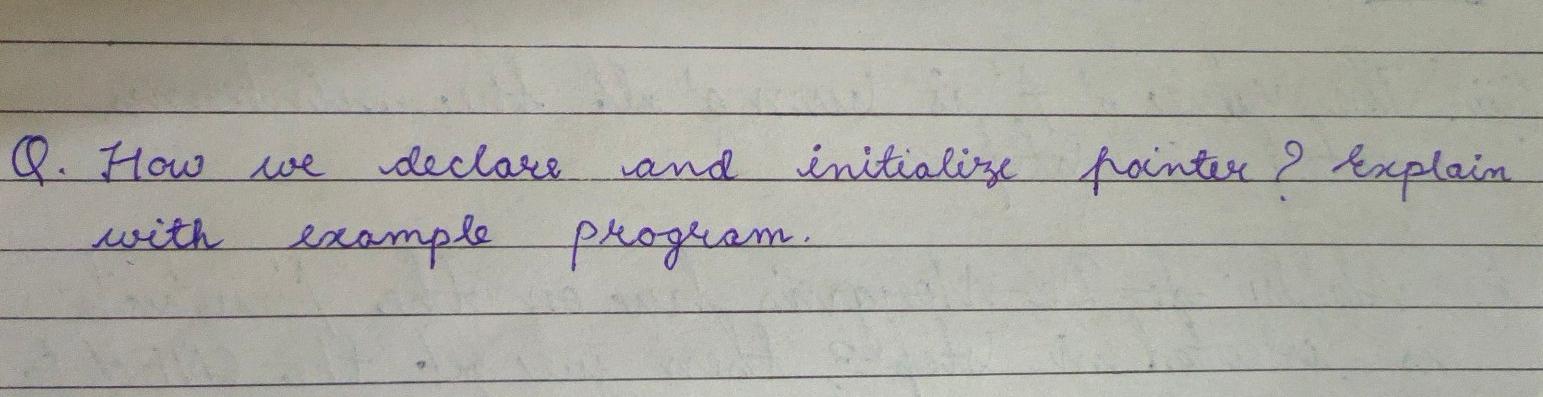 Q. How we declare and initialize pointer? Explain
with example program.